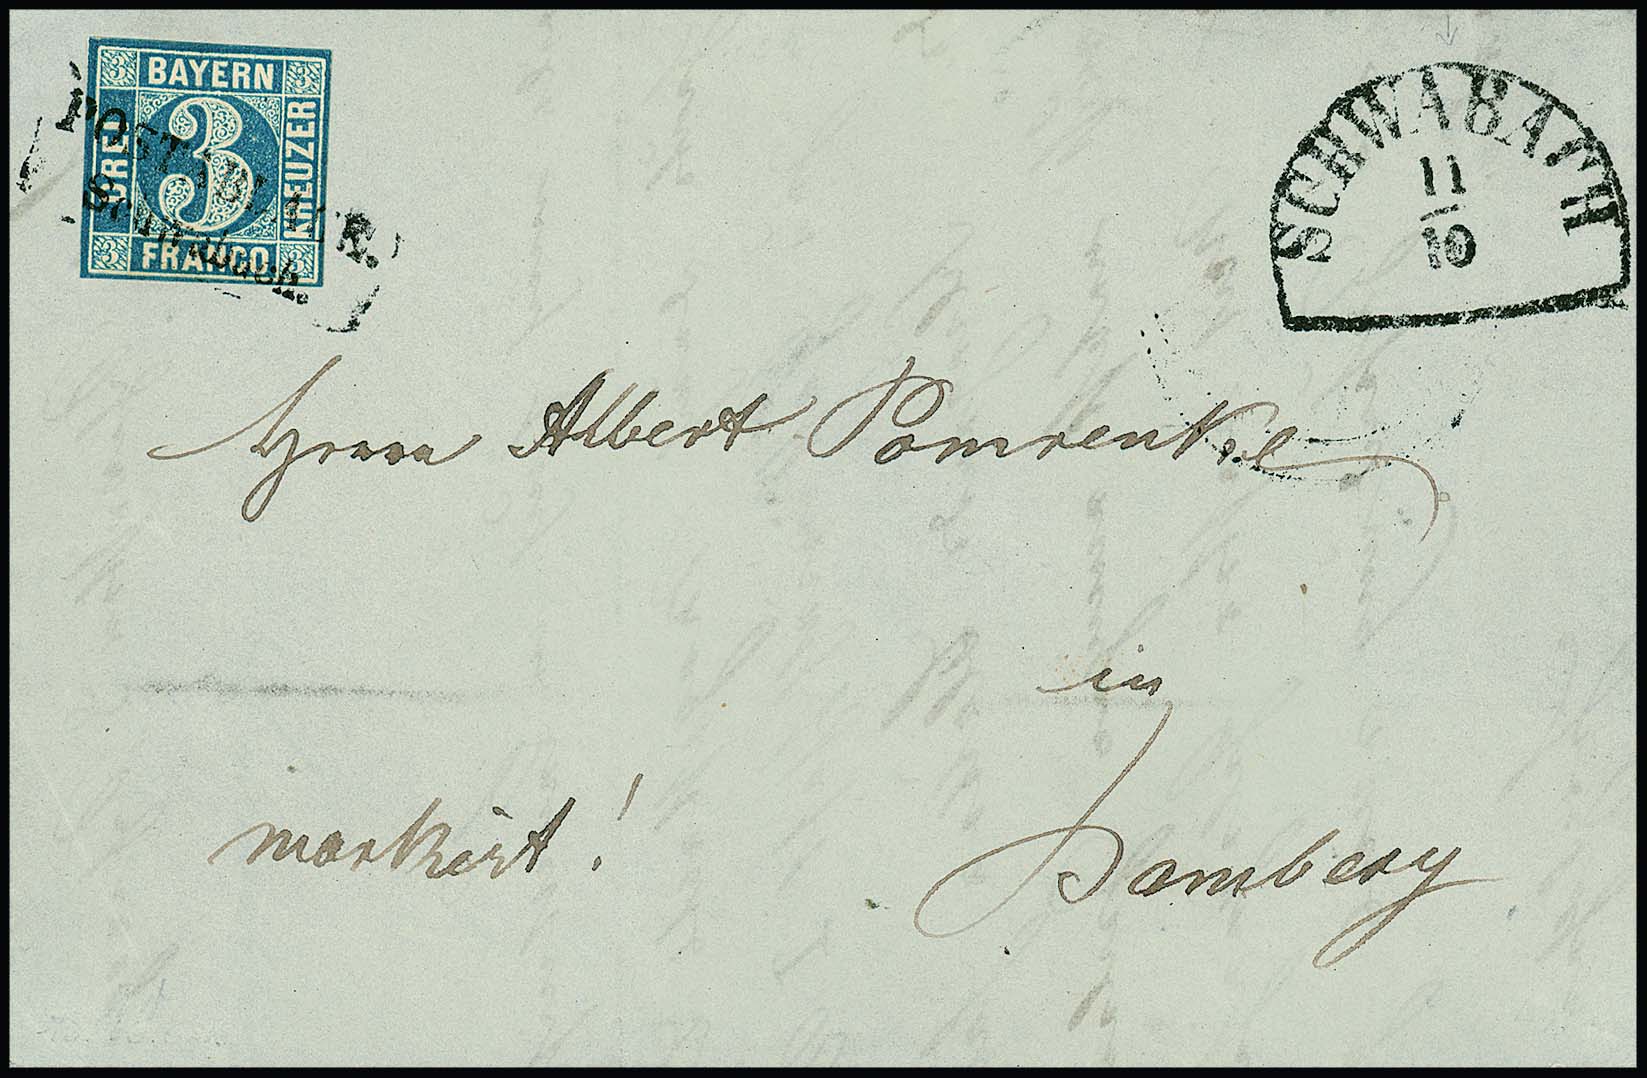 3 BAYERN 3
DREI 3 KREUZER
3 FRANCO 3
POSTABLAGE.
Schwabach.
SCHWABACH
11
10
Herrn Albert Pomrenke
in
Bamberg
markirt!